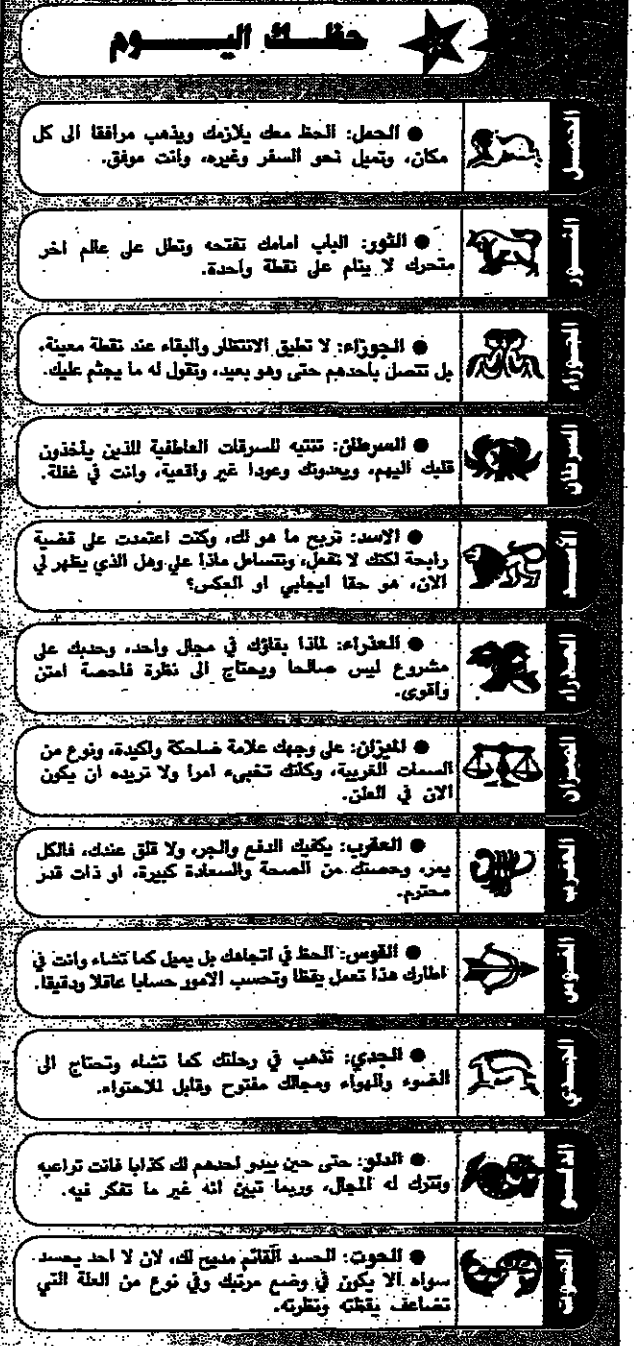 حظك اليوم
الحمل
● الحمل: الحظ معك يلازمك ويذهب مرافقا الى كل
مكان، وتميل نحو السفر وغيره، وانت موفق.
الثور
● الثور: الباب امامك تفتحه وتطل على عالم اخر
متحرك لا ينام على نقطة واحدة.
الجوزاء
● الجوزاء: لا تطيق الانتظار والبقاء عند نقطة معينة،
بل تتصل باحدهم حتى وهو بعيد، وتقول له ما يجثم عليك.
السرطان
● السرطان: تنتبه للسرقات العاطفية للذين ياخذون
قلبك اليهم، ويعدونك وعودا غير واقعية، وانت في غفلة.
الأسد
● الاسد: تربح ما هو لك، وكنت اعتمدت على قضية
رابحة لكنك لا تفعل، وتتساءل ماذا علي وهل الذي يظهر لي
الان، هو حقا ايجابي او العكس؟
العذراء
● العذراء: لماذا بقاؤك في مجال واحد، وحدبك على
مشروع ليس صالحا ويحتاج الى نظرة فاحصة امتن
وأقوى.
الميزان
● الميزان: على وجهك علامة ضاحكة واكيدة، ونوع من
السمات الغريبة، وكأنك تخبىء امرا ولا تريده ان يكون
الان في العلن.
العقرب
● العقرب: يكفيك الدفع والجر، ولا قلق عندك، فالكل
يمر، وحصتك من الصحة والسعادة كبيرة، او ذات قدر
محترم.
القوس
● القوس: الحظ في اتجاهك بل يميل كما تشاء وانت في
اطارك هذا تعمل يقظا وتحسب الامور حسابا عاقلا ودقيقا.
الجدي
● الجدي: تذهب في رحلتك كما تشاء وتحتاج الى
الضوء والهواء ومجالك مفتوح وقابل للاحتواء.
الدلو
● الدلو: حتى حين يبدو احدهم لك كذابا فانت تراعيه
وتترك له المجال، وربما تبين انه غير ما تفكر فيه.
الحوت
● الحوت: الحسد القائم مديح لك، لان لا احد يحسد
سواه الا يكون في وضع مرتبك وفي نوع من العلة التي
تضاعف يقظته ونظرته.